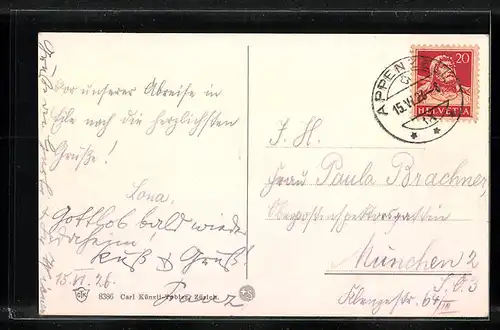 Vor unserer Abreise in
Eile noch die herzlichsten
Grüße!
Lona.
Gotthob bald wieder
daheim!
Kuß & Gruß!
15. VI. 26.
Grüße von
8386 Carl Künzli-Tobler, Zürich.
APPENZELL
15.VI.26
20
HELVETIA
I. H.
Frau Paula Brachner,
Oberpostinspektorsgattin
München 2
S.O.3
Klenzestr. 64/III